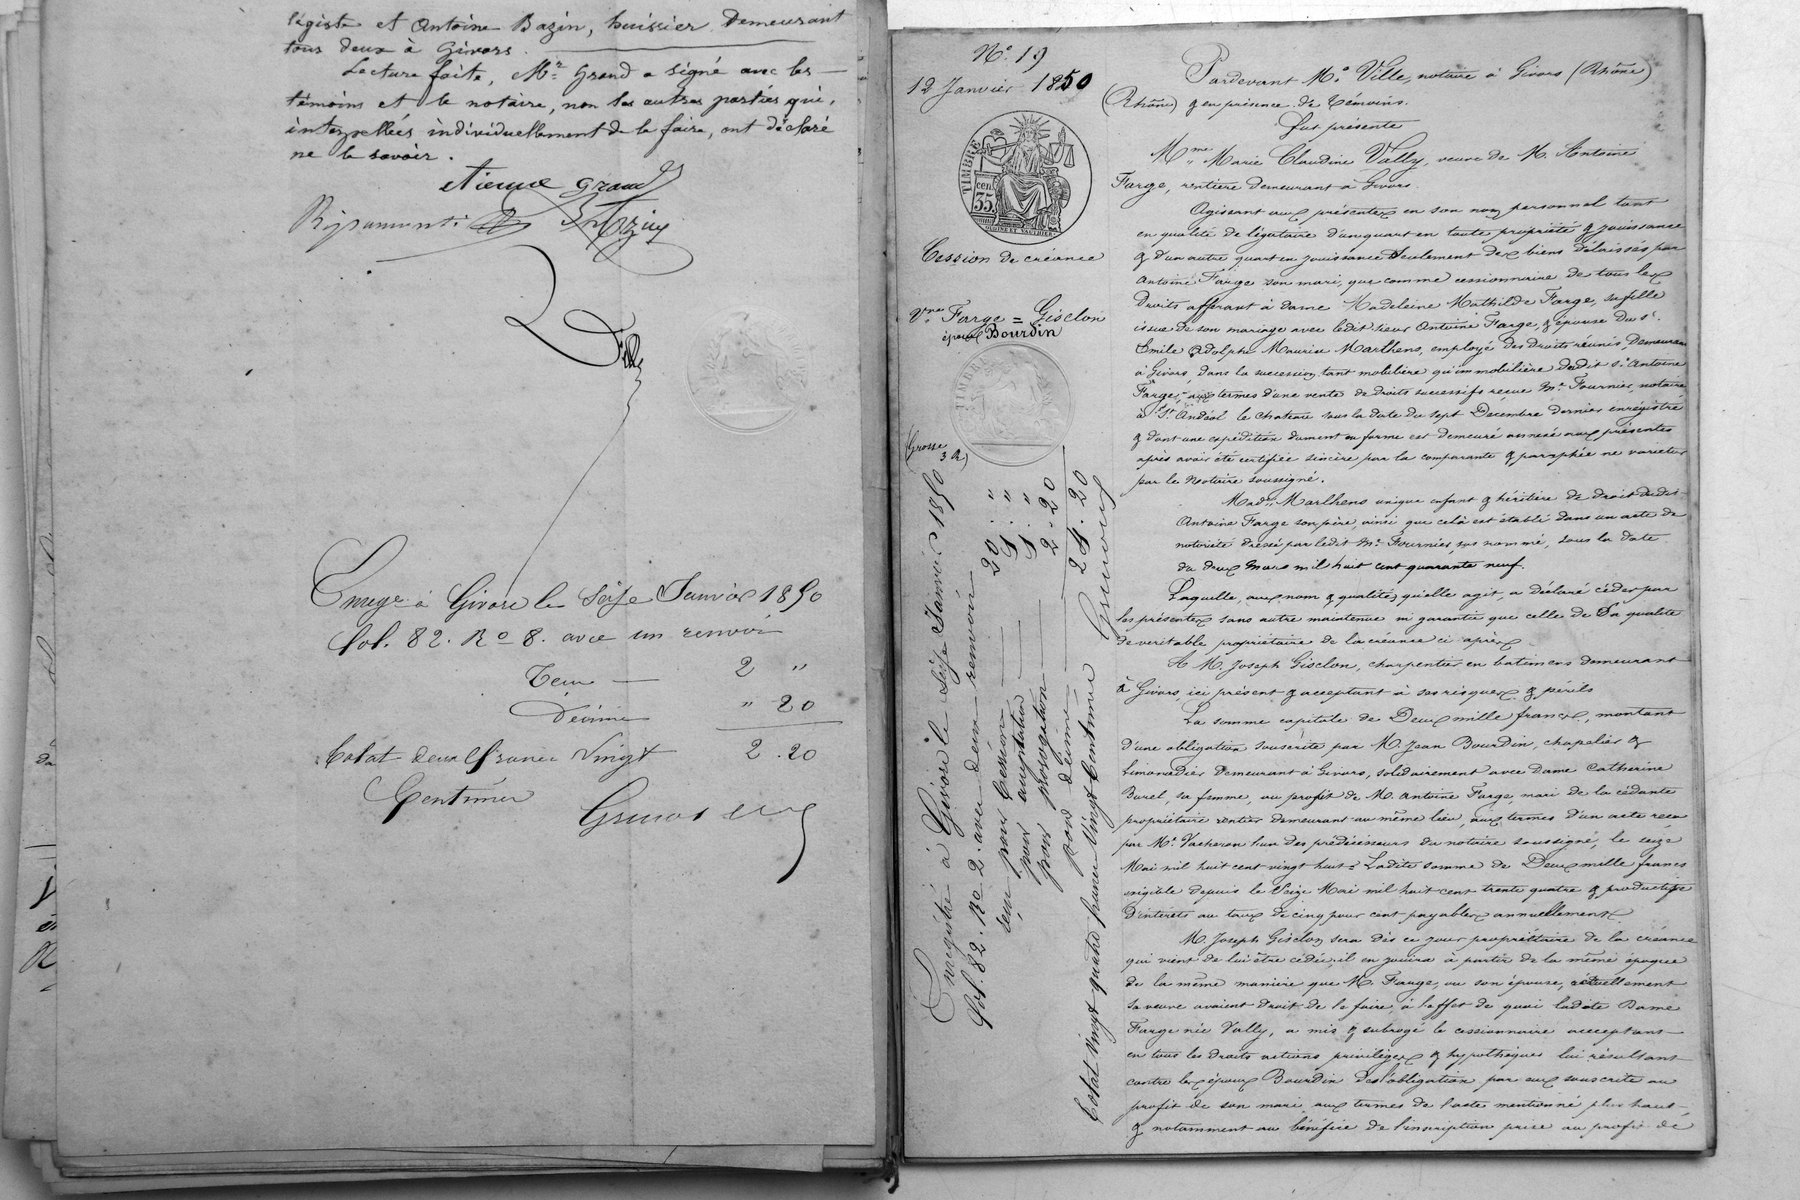 légiste et Antoine Bazin, huissier demeurant
tous deux à Givors.
Lecture faite, Mr Grand a signé avec les
témoins et le notaire, non les autres parties qui,
interpellées individuellement de le faire, ont déclaré
ne le savoir.
etienne grand
Ripamonti
Bazin
Enregé à Givors le Seize Janvier 1850
fol. 82. Ro 8. avec un renvoi
2 "
Décime " 20
Total deux francs Vingt 2.20
Centimes
No. 19
12 Janvier 1850
TIMBRE
cen
35
Cession de créance
Vve Farge = Gisclon
époux Bourdin
TIMBRE
(Grosse
3 R)
Enregistré à Givors le Seize Janvier 1850
fol. 82. Ro 2. avec deux renvois
reçu pour Cession 20. "
pour acceptation 1. "
pour prorogation 1. "
pour décime 2.20
24.20
Total Vingt quatre francs Vingt Centimes
Pardevant Me Ville, notaire à Givors (Rhône)
(Rhône) & en présence de témoins.
Fut présente
Mme Marie Claudine Vally, veuve de M. Antoine
Farge, rentière demeurant à Givors.
Agissant aux présentes en son nom personnel tant
en qualité de légataire d'un quart en toute propriété & jouissance
& d'un autre quart en jouissance seulement des biens délaissés par
Antoine Farge son mari, que comme cessionnaire de tous les
droits afférant à dame Madeleine Mathilde Farge, sa fille
issue de son mariage avec ledit sieur Antoine Farge, & épouse du sr.
Emile Adolphe Maurice Marthens, employé des droits réunis, demeurant
à Givors, dans la succession tant mobilière qu'immobilière dudit sr Antoine
Farge, aux termes d'une vente de droits successifs reçue Me Fournier, notaire
à St Andéol le chateau sous la date du sept Décembre dernier enrégistré
& dont une expédition dument en forme est demeuré annexé aux présentes
après avoir été certifiée sincère par la comparante & paraphée ne varietur
par le notaire soussigné.
Made Marthens unique enfant & héritière de droit dudit
Antoine Farge son père, ainsi que celà est établi dans un acte de
notoriété dressé par ledit Me Fournier, sus nommé, sous la date
du deux Mars mil huit cent quarante neuf.
Laquelle, aux nom & qualités qu'elle agit, a déclaré céder par
les présentes sans autre maintenue ni garantie que celle de sa qualité
de véritable propriétaire de la créance ci après
A M. Joseph Gisclon, charpentier en batimens demeurant
à Givors, ici présent & acceptant à ses risques & périls
La somme capitale de Deux mille francs, montant
d'une obligation souscrite par M. Jean Bourdin, chapelier &
limonadier demeurant à Givors, solidairement avec Dame Catherine
Burel, sa femme, au profit de M. Antoine Farge, mari de la cédante
propriétaire rentier demeurant au même lieu, aux termes d'un acte reçu
par Me Vacheron l'un des prédécesseurs du notaire soussigné, le seize
Mai mil huit cent vingt huit. Ladite somme de Deux mille francs
exigible depuis le Seize Mai mil huit cent trente quatre & productive
d'intérêts au taux de cinq pour cent payables annuellement.
M. Joseph Gisclon sera dès ce jour propriétaire de la créance
qui vient de lui être cédée; il en jouira à partir de la même époque
de la même manière que M. Farge, ou son épouse, actuellement
sa veuve avaient droit de le faire, à l'effet de quoi ladite Dame
Farge née Vally, a mis & subrogé le cessionnaire acceptant
en tous les droits actions privilèges & hypothèques lui résultant
contre les époux Bourdin de l'obligation par eux souscrite au
profit de son mari aux termes de l'acte mentionné plus haut,
& notamment au bénéfice de l'inscription prise au profit de